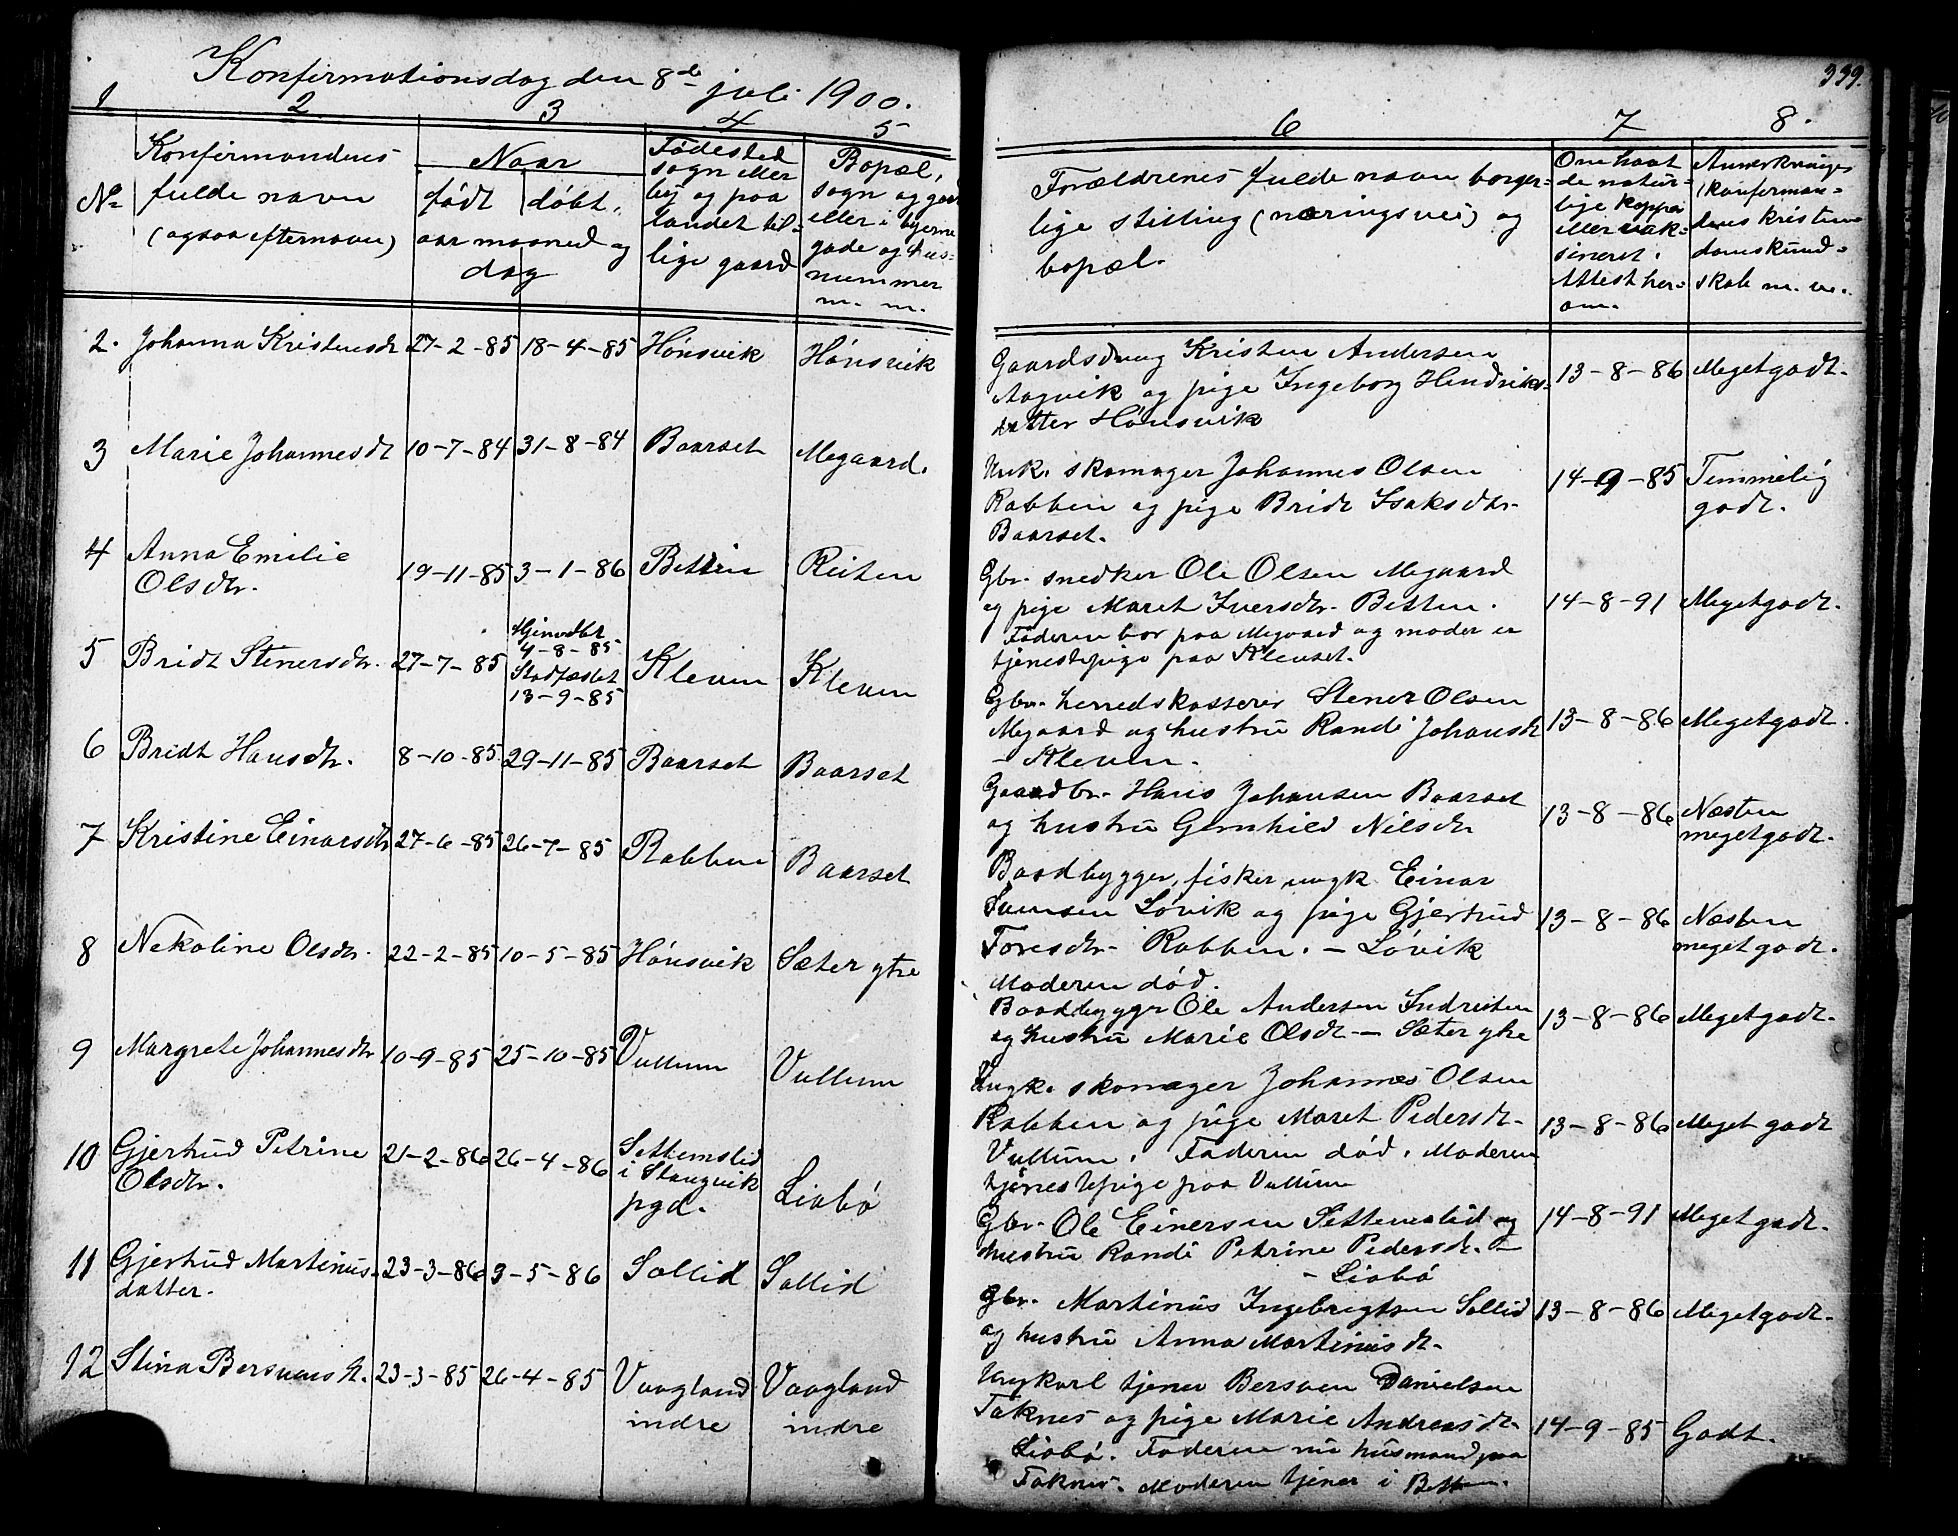 Konfirmationsdag den 8de juli 1900.
339.
1 2 3 4 5 6 7 8.
No
Konfirmandens
fulde navn
(ogsaa efternavn)
Naar
født døbt,
aar maaned og
dag
Fødested
sogn eller
by og paa
landet til-
lige gaard
Bopæl,
sogn og gaard
eller i byerne
gade og hus-
nummer
m. m.
Forældrenes fulde navn borger-
lige stilling (næringsvei) og
bopæl.
Om havt
de natur-
lige kopper
eller vak-
sineret.
Attest her-
om.
Anmerkninger
(konfirman-
dens kristen-
domskund-
skab m. m.
2. Johanna Kristensdt 27-2-85 18-4-85 Hönsvik Hönsvik
Gaardsdreng Kristen Andersen
Aagvik og pige Ingeborg Hendriks-
datter Hönsvik
13-8-86 Megetgodt.
3 Marie Johannesdt 10-7-84 31-8-84 Baarset Megaard.
Unk. skomager Johannes Olsen
Rabben og pige Bridt Isaksdtr.
Baarset.
14-9-85 Temmelig
godt.
4 Anna Emilie
Olsdtr. 19-11-85 3-1-86 Betten Reiten
Gbr. snedker Ole Olsen Megaard
og pige Maret Iversdtr. Betten.
Faderen bor paa Megaard og moder er
tjenestepige paa Klevset.
14-8-91 Megetgodt.
5 Bridt Stenersdtr. 27-7-85
Hjemdbt
4-8-85
Stadfæstet
13-9-85
Kleven Kleven
Gbr. herredskasserer Stener Olsen
Megaard og hustru Randi Johansdt
- Kleven.
13-8-86 Megetgodt.
6 Bridt Hansdtr. 8-10-85 29-11-85 Baarset Baarset
Gaardbr. Hans Johansen Baarset
og hustru Gernhild Nilsdtr
13-8-86 Næsten
megetgodt.
7 Kristine Einarsdtr 27-6-85 26-7-85 Rabben Baarset
Baadbygger, fisker ungk Einar
Iversen Lövik og pige Gjertrud
Toresdtr. Rabben. - Lövik
Moderen död.
13-8-86 Næsten
meget godt.
8 Nekoline Olsdtr. 22-2-85 10-5-85 Hönsvik Sæter ytre
Baadbygger Ole Andersen Indresten
og hustru Marie Olsdt - Sæter ytre
13-8-86 Megetgodt.
9 Margrete Johannesdtr 10-9-85 25-10-85 Vullum Vullum
Ungk. skomager Johannes Olsen
Rabben og pige Maret Pedersdt.
Vullum. Faderen död. Moderen
tjenestepige paa Vullum
13-8-86 Meget godt
10 Gjertrud Petrine
Olsdtr. 21-2-86 26-4-86
Settemslid
i Stangvik
pgd.
Liabö
Gbr. Ole Einersen Settemslid og
hustru Randi Petrine Pedersdt. -
- Liabö
14-8-91 Megetgodt.
11 Gjertrud Martinus-
datter. 23-3-86 9-5-86 Sollid Sollid
Gbr. Martinus Ingebrigtsen Sollid
og hustru Anna Martinusdt.
13-8-86 Megetgodt.
12 Stina Bersvensdt. 23-3-85 26-4-85 Vaagland
indre
Vaagland
indre
Ungkarl tjener Bersven Danielsen
Taknes og pige Marie Andreasdt.
Liabö. Faderen nu husmand paa
Taknes. Moderen tjener i Betten.
14-9-85 Godt.